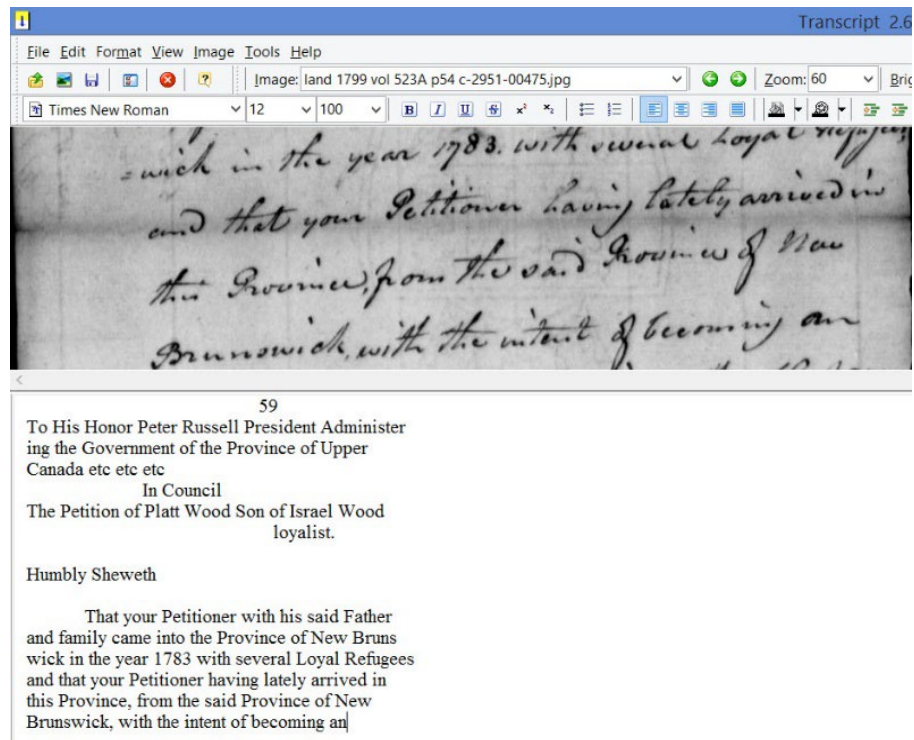 Transcript 2.6
File Edit Format View Image Tools Help
Image: land 1799 vol 523A p54 c-2951-00475.jpg Zoom: 60 Brig
Times New Roman 12 100 B I U S x² x₂
=wick in the year 1783. with several Loyal Refugees
and that your Petitioner having lately arrived in
this Province, from the said Province of New
Brunswick, with the intent of becoming an
59
To His Honor Peter Russell President Administer
ing the Government of the Province of Upper
Canada etc etc etc
In Council
The Petition of Platt Wood Son of Israel Wood
loyalist.
Humbly Sheweth
That your Petitioner with his said Father
and family came into the Province of New Bruns
wick in the year 1783 with several Loyal Refugees
and that your Petitioner having lately arrived in
this Province, from the said Province of New
Brunswick, with the intent of becoming an